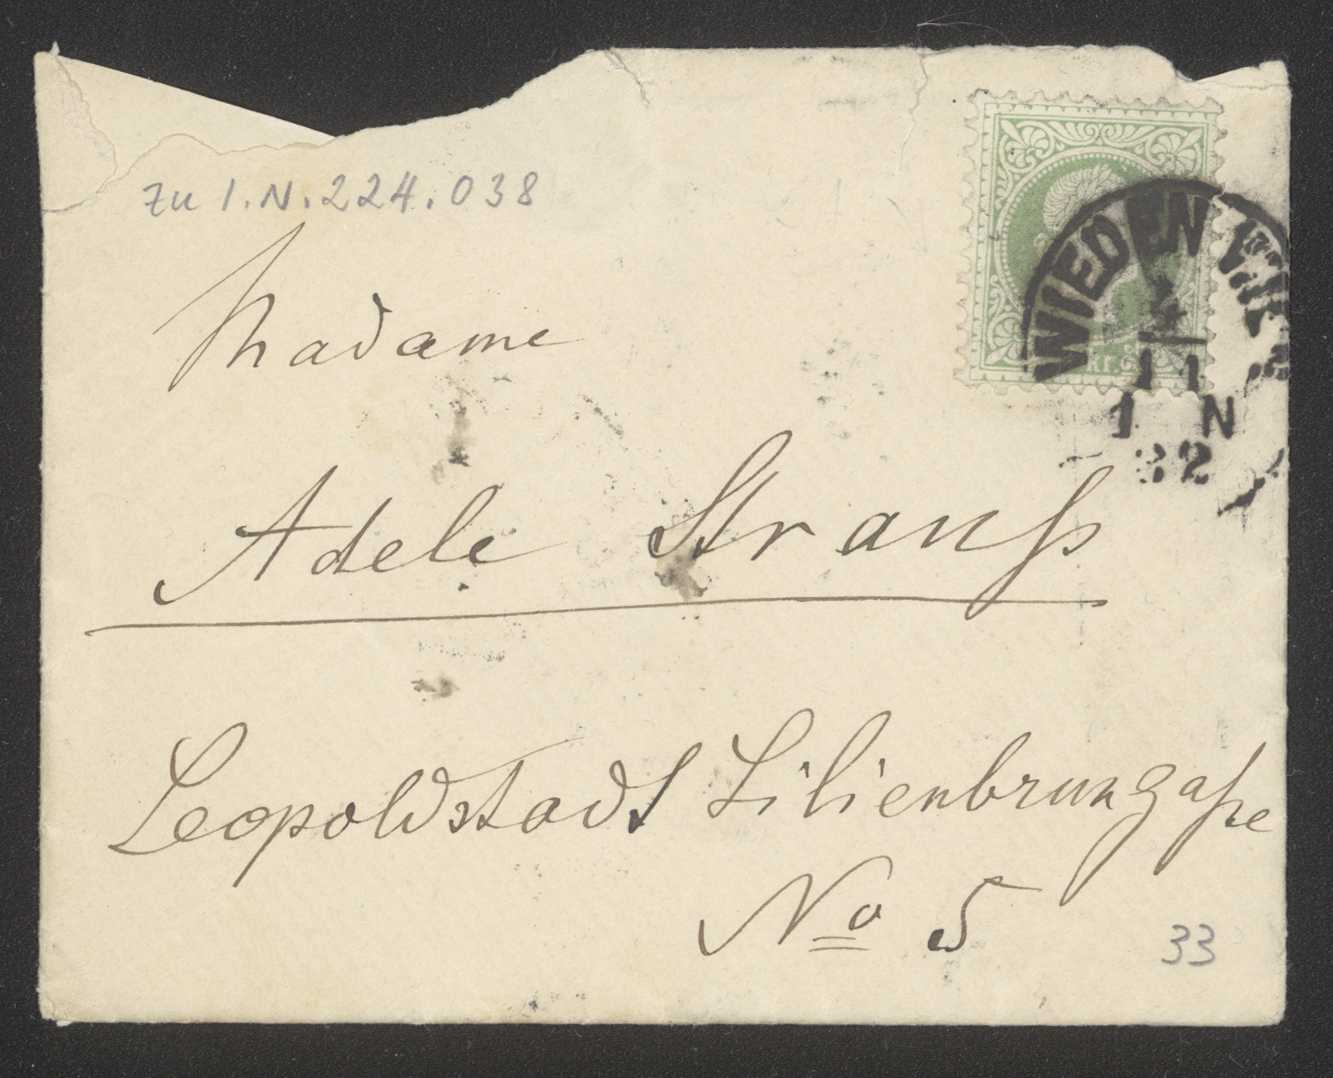 zu I.N. 224.038
WIEDEN WIEN
11
1 N
82
Madame
Adele Strauß
Leopoldstadt Lilienbrungaße
No 5
33